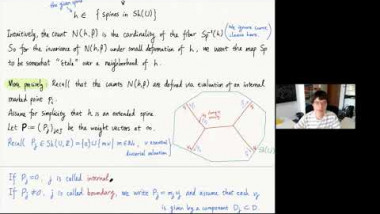 the given spine
h ∈ { spines in Sk(U) }
Intuitively, the count N(h,β) is the cardinality of the fiber Sp⁻¹(h)
So for the invariance of N(h,β) under small deformation of h, we want the map Sp
to be somewhat "étale" over a neighborhood of h.
More precisely: Recall that the counts N(h,β) are defined via evaluation of an internal
marked point
Assume for simplicity that h is an extended spine.
Let P := (Pj)j∈J be the weight vectors at ∞.
Recall Pj ∈ Sk(U,ℤ) =
divisorial valuation
If Pj = 0, j is called internal.
If Pj ≠ 0, j is called boundary, we write Pj = mj νj and assume that each νj
is given by a component Dj ⊂ D.